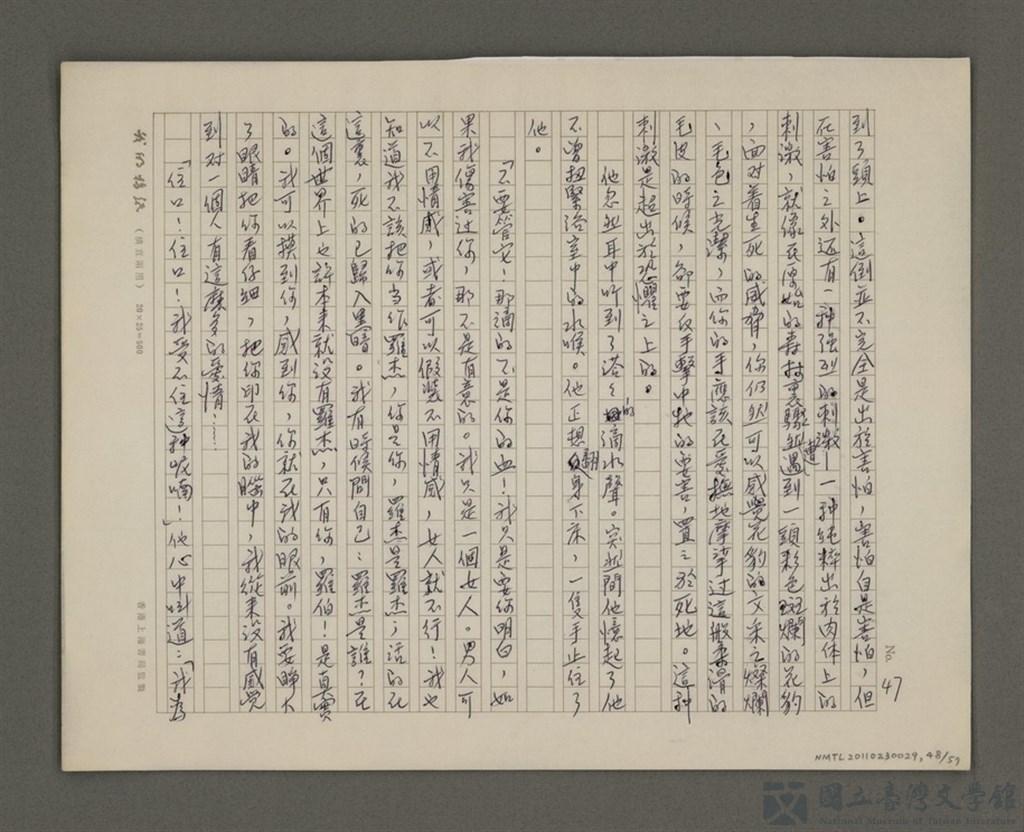 No. 47
到了頭上。這倒並不完全是出於害怕,害怕自是害怕,但
在害怕之外还有一种强烈的刺激——一种純粹出於肉体上的
刺激,就像在原始的森林裏驟然遭遇到一頭彩色斑斕的花豹
,面对着生死的威脅,你仍然可以感覺花豹的文采之燦爛
、毛色之光潔,而你的手應該在愛撫地摩挲过這般柔滑的
毛皮的時候,卻要反手擊中牠的要害,置之於死地。這种
刺激是超出於恐懼之上的。
他忽然耳中听到了答答的滴水聲。突然間他憶起了他
不曾扭緊浴室中的水喉。他正想翻身下床,一隻手止住了
他。
「不要管它!那滴的不是你的血!我只是要你明白,如
果我傷害过你,那不是有意的。我只是一個女人。男人可
以不用情感,或者可以假裝不用情感,女人就不行!我也
知道我不該把你当作羅杰,你是你,羅杰是羅杰;活的在
這裏,死的已歸入黑暗。我有時候問自己:羅杰是誰?在
這個世界上也許本來就没有羅杰,只有你,羅伯!是真實
的。我可以摸到你,感到你,你就在我的眼前。我要睜大
了眼睛把你看仔細,把你印在我的腦中,我從來没有感覺
到对一個人有這麼多的愛情!……
「住口!住口!我受不住這种呢喃!」他心中叫道:「我為
我的稿紙 (橫直兩用) 20×25=500
香港上海書局監製
NMTL20110230029, 48/59
國立臺灣文學館
National Museum of Taiwan Literature